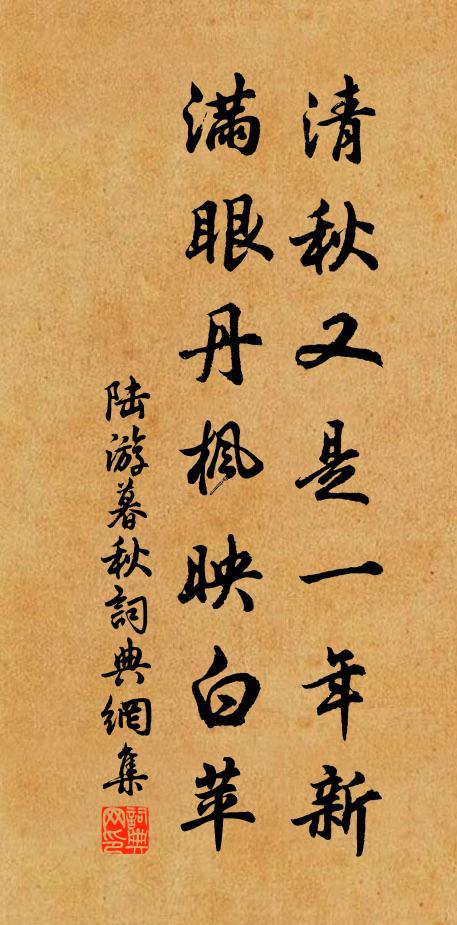 清秋又是一年新
滿眼丹楓映白苹
陆游暮秋詞典網集
詞典
网印